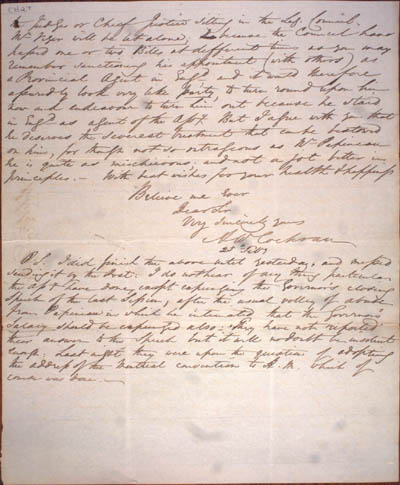 or Judge or Chief Justice sitting in the Leg. Council.
Mr Viger will be let alone, because the Council have
passed one or two Bills at different times as you may
remember sanctioning his appointment (with others) as
a Provincial Agent in Engd and it would therefore
assuredly look very like Party, to turn round upon him
now and endeavour to turn him out because he staid
in Engd as agent of the Assy. But I agree with you that
he deserves the severest treatment that can be bestowed
on him, for though not so outrageous as Mr Papineau
he is quite as mischievous, and not a jot better in
principles. — With best wishes for your health & happiness
Believe me Ever
Dear Sir
Very sincerely yours
A W Cochran
P.S. I did finish the above until yesterday, and missed
sending it by the post. I do not hear of any thing particular
the Assy have done, except expunging the Governor's closing
Speech of the last Session, after the usual volley of abuse
from Papineau in which he intimated that the Governor's
Salary should be expunged also. They have not reported
their answer to the Speech but it will no doubt be insolent
enough. Last night they were upon the question of adopting
the address of the Montreal convention to H. M. which of
course was done. —